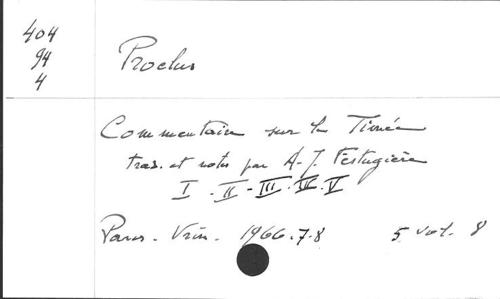 404
94
4
Proclus
Commentaire sur le Timée
trad. et notes par A.-J. Festugière
I - II - III. IV. V
Paris - Vrin - 1966.7.8 5 vol. 8